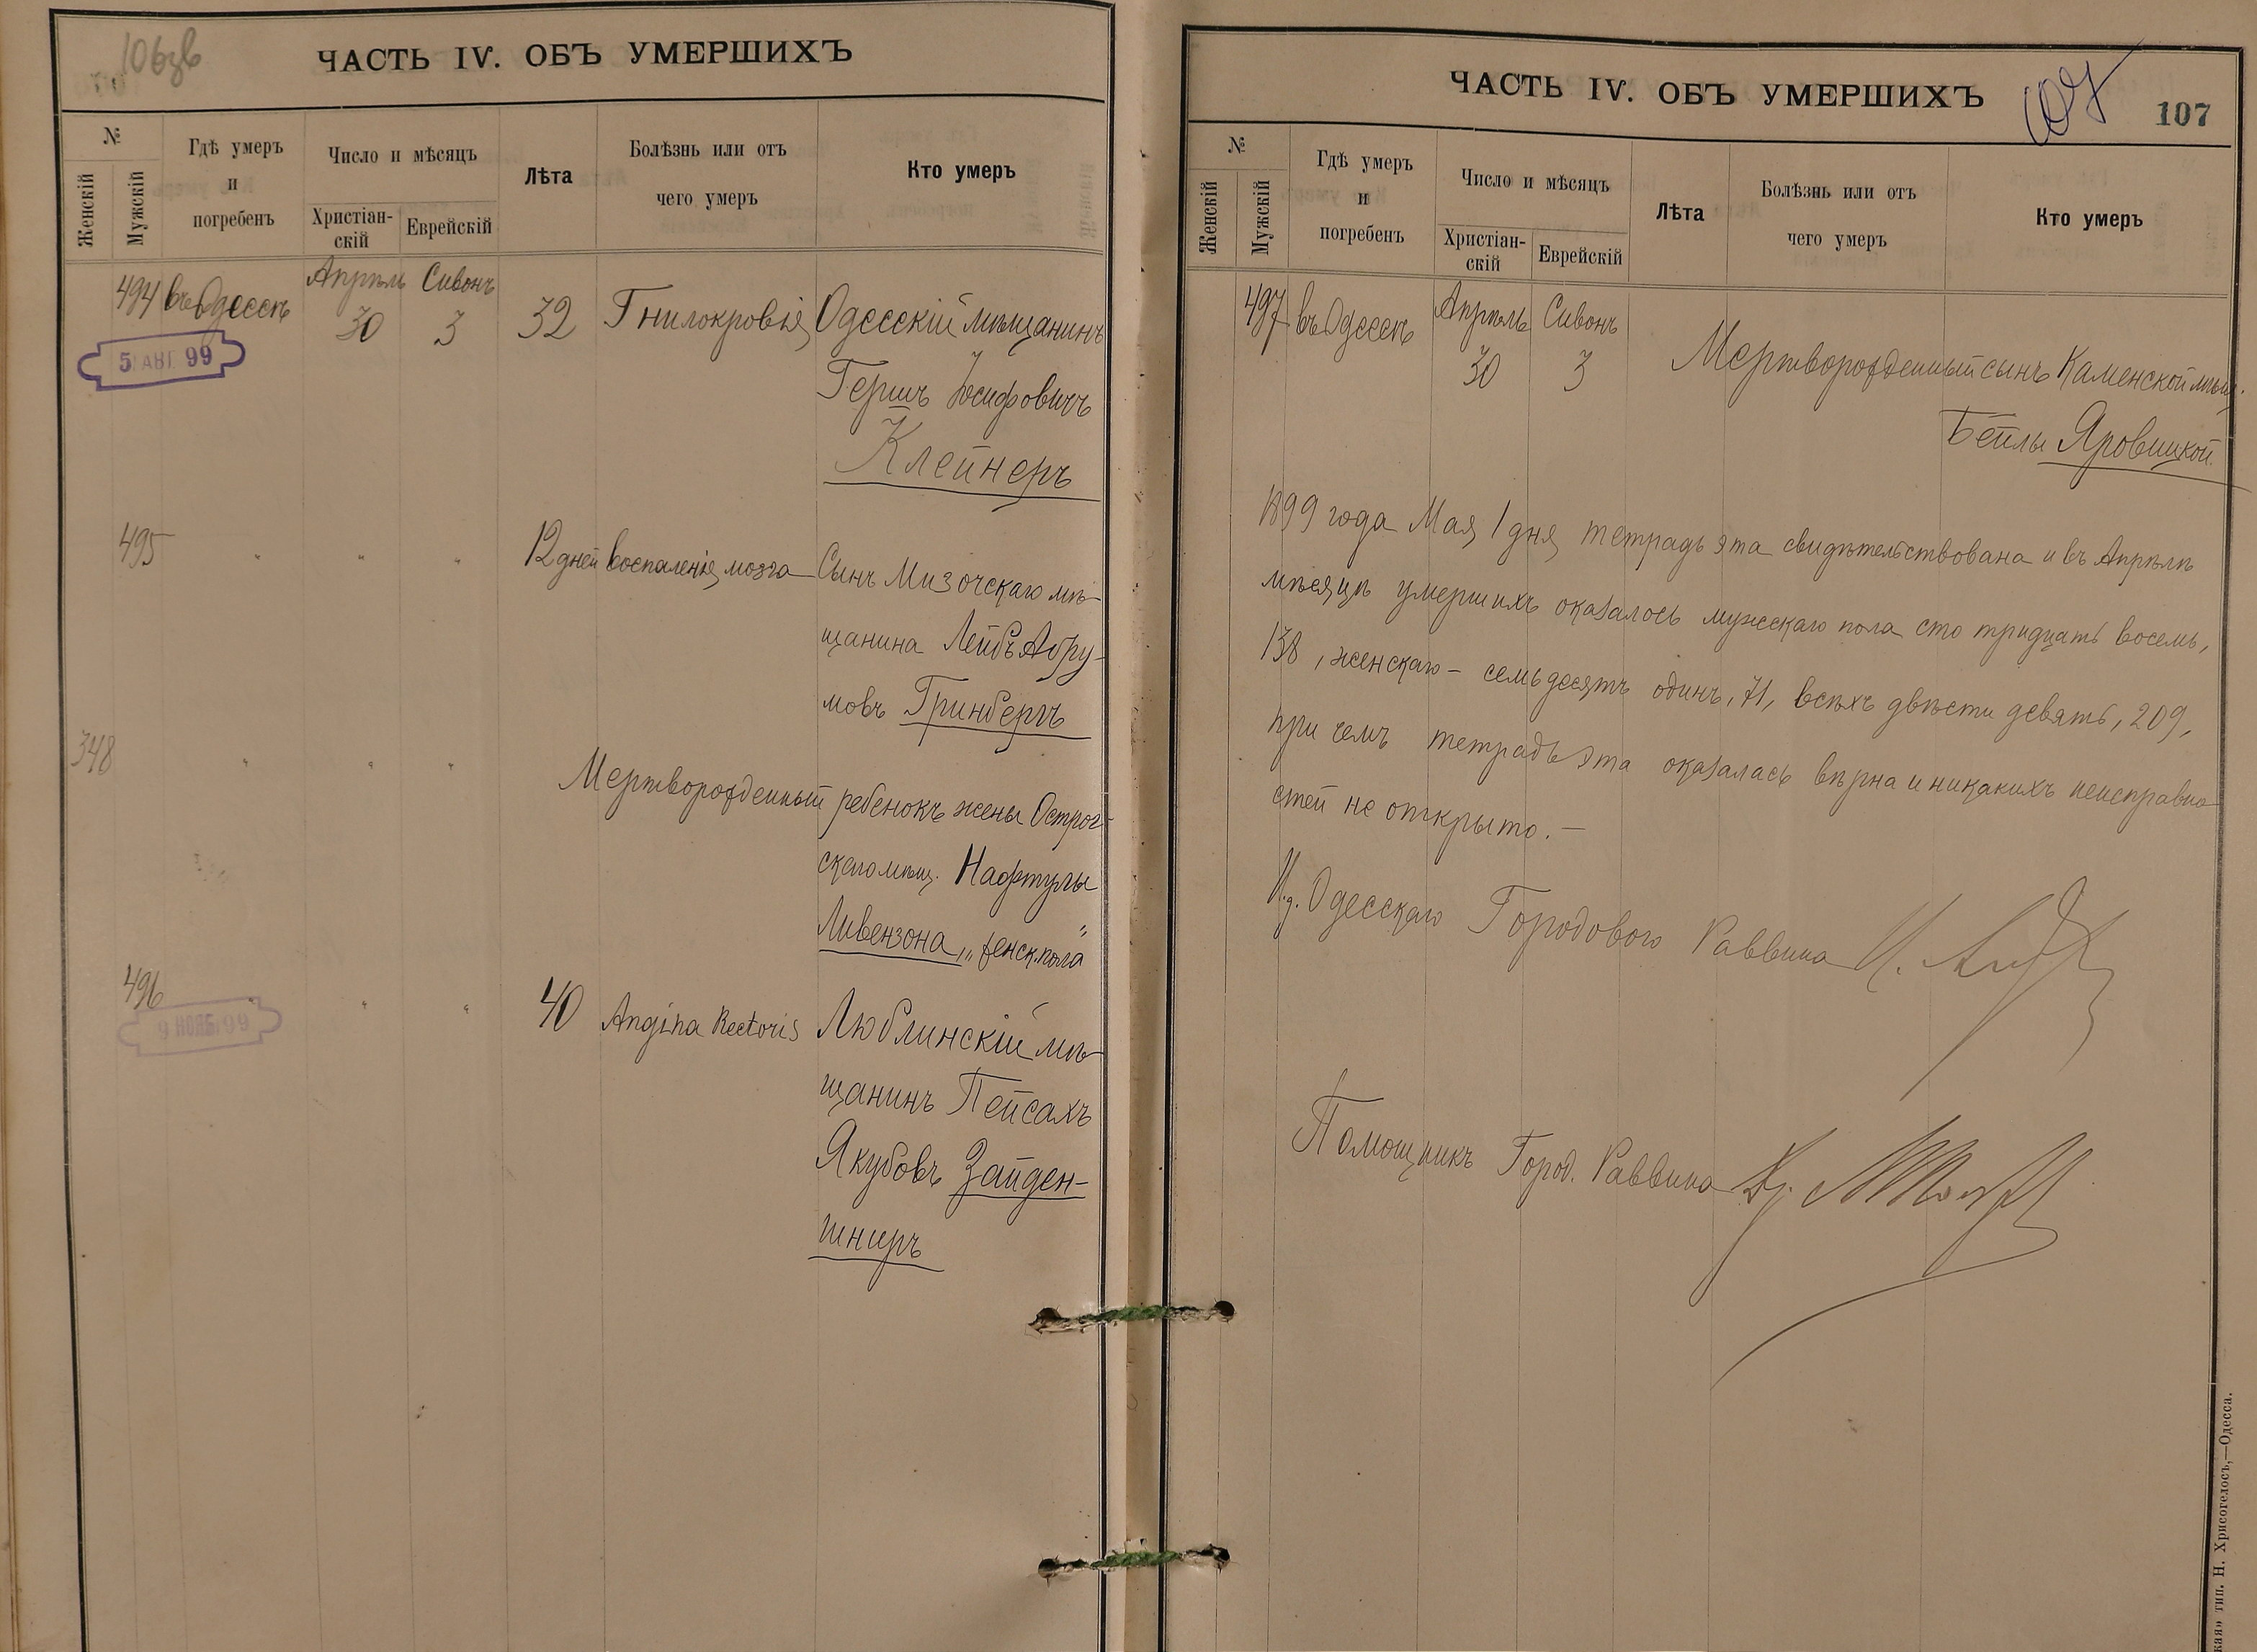 106зв
ЧАСТЬ IV. ОБЪ УМЕРШИХЪ
№
Женскій
Мужскій
Гдѣ умеръ
и
погребенъ
Число и мѣсяцъ
Христіан-
скій
Еврейскій
Лѣта
Болѣзнь или отъ
чего умеръ
Кто умеръ
494 въ Одессѣ Апрѣль 30 Сивонъ 3 32 Гнилокровія Одесскій мѣщанинъ
5 АВГ. 99
Гершъ Іосифовичъ
Клейнеръ
495 " " " 12 дней воспаленія мозга Сынъ Мизочскаго мѣ-
щанина Лейбъ Абру-
мовъ Гринбергъ
348 " " " Мертворожденный ребенокъ жены Острог-
скаго мѣщ. Нафтулы
Ливензона, "женск. пола"
496 " " " 40 Angina Pectoris Люблинскій мѣ-
9 НОЯБ. 99
щанинъ Пейсахъ
Якубовъ Зайден-
шниръ
ЧАСТЬ IV. ОБЪ УМЕРШИХЪ
107
107
№
Женскій
Мужскій
Гдѣ умеръ
и
погребенъ
Число и мѣсяцъ
Христіан-
скій
Еврейскій
Лѣта
Болѣзнь или отъ
чего умеръ
Кто умеръ
497 въ Одессѣ Апрѣль 30 Сивонъ 3 Мертворожденный сынъ Каменской мѣщ.
Бейлы Яровицкой
1899 года Мая 1 дня тетрадь эта свидѣтельствована и въ Апрѣлѣ
мѣсяцѣ умершихъ оказалось мужескаго пола сто тридцать восемь,
138, женскаго – семьдесятъ одинъ, 71, всѣхъ двѣсти девять, 209,
при чемъ тетрадь эта оказалась вѣрна и никакихъ неисправно-
стей не открыто. –
И.д. Одесскаго Городового Раввина
Помощникъ Город. Раввина
тип. Н. Хрисогелосъ,—Одесса.